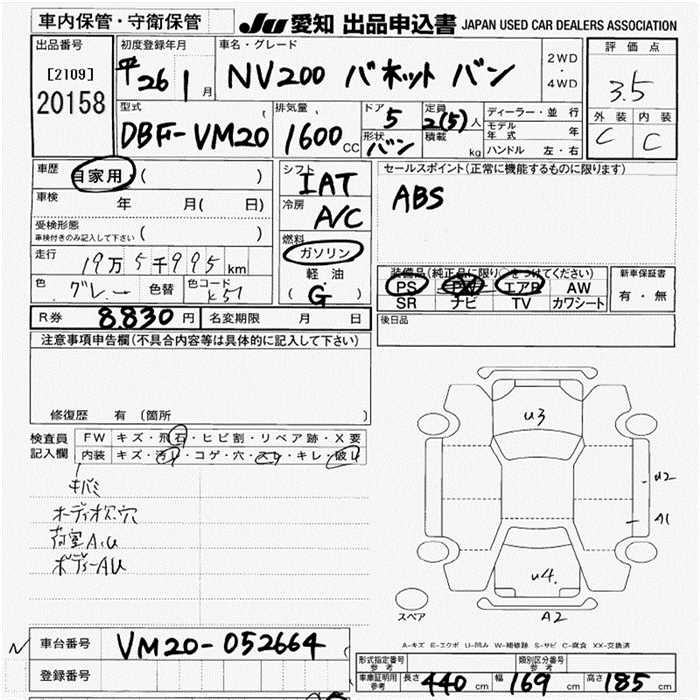 車内保管・守衛保管 JU 愛知 出品申込書 JAPAN USED CAR DEALERS ASSOCIATION
出品番号 初度登録年月 車名・グレード 評価点
[2109] 平26 1月 NV200 バネット バン 2WD・4WD 3.5
20158 型式 排気量 ドア 5 定員 2(5)人 ディーラー・並行 外装 内装
DBF-VM20 1600cc 形状 バン 積載 kg モデル年式 年 C C
ハンドル 左・右
車歴 自家用 ( ) シフト IAT セールスポイント(正常に機能するものに限ります)
車検 年 月( 日) 冷房 A/C ABS
受検形態
車検付きのみ記入して下さい ( )
燃料 ガソリン
走行 19万5千995km 軽油 装備品(純正品に限り○をつけてください) 新車保証書
色 グレー 色替 色コード K51 ( G ) PS PW エアB AW 有・無
SR ナビ TV カワシート
R券 8,830円 名変期限 月 日 後日品
注意事項申告欄(不具合内容等は具体的に記入して下さい)
修復歴 有 (箇所 )
検査員 FW キズ・飛石・ヒビ割・リペア跡・X要
記入欄 内装 キズ・汚れ・コゲ・穴・スレ・キレ・破レ
キバミ
オーディオス穴
荷室A.U
ボディーAU
U3
U2
A1
U4
スペア A2
A-キズ E-エクボ U-凹み W-補修跡 S-サビ C-腐食 XX-交換済
車台番号 VM20-052664
登録番号
型式指定番号 参考 類別区分番号 参考
車庫証明用 参考 長さ 440 cm 幅 169 cm 高さ 185 cm